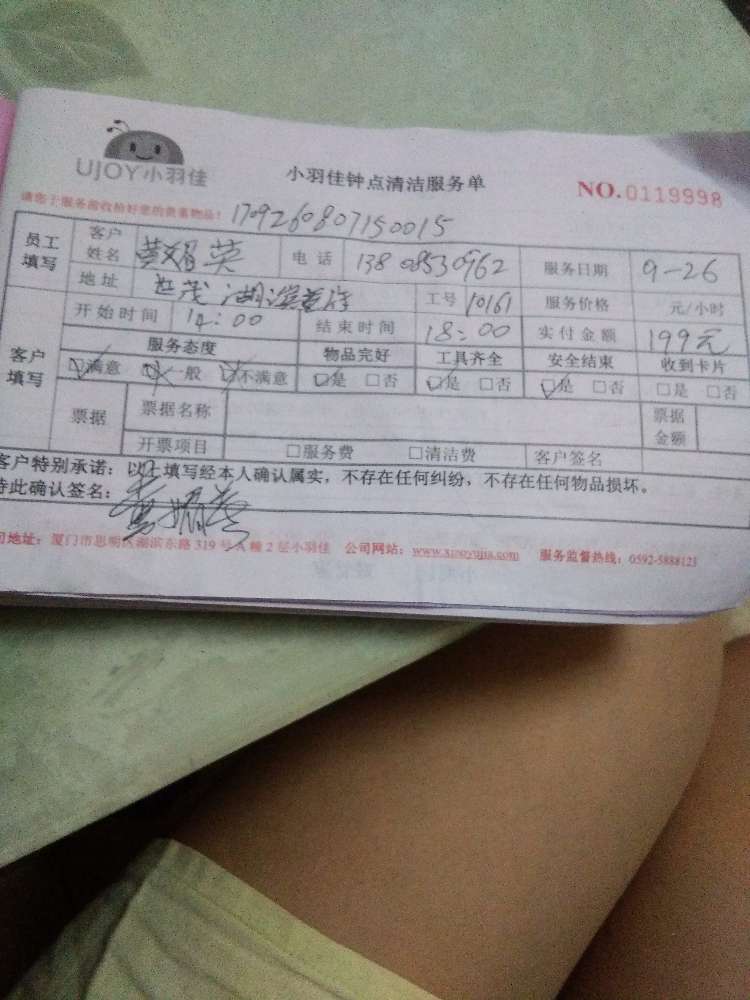 UJOY小羽佳
小羽佳钟点清洁服务单
NO.0119998
请您于服务前收拾好您的贵重物品!
1709260807150015
员工填写 客户姓名 黄媚英 电话 服务日期 9-26
地址 世茂湖滨首府 工号 10161 服务价格 元/小时
客户填写 开始时间 14:00 结束时间 18:00 实付金额 199元
服务态度 物品完好 工具齐全 安全结束 收到卡片
☑满意 ☑一般 ☑不满意 ☑是 □否 ☑是 □否 ☑是 □否 □是 □否
票据 票据名称 票据金额
开票项目 □服务费 □清洁费 客户签名
客户特别承诺:以上填写经本人确认属实,不存在任何纠纷,不存在任何物品损坏。
特此确认签名: 黄媚英
司地址:厦门市思明区湖滨东路319号A幢2层小羽佳 公司网站:www.xiaoyujia.com 服务监督热线:0592-5888123